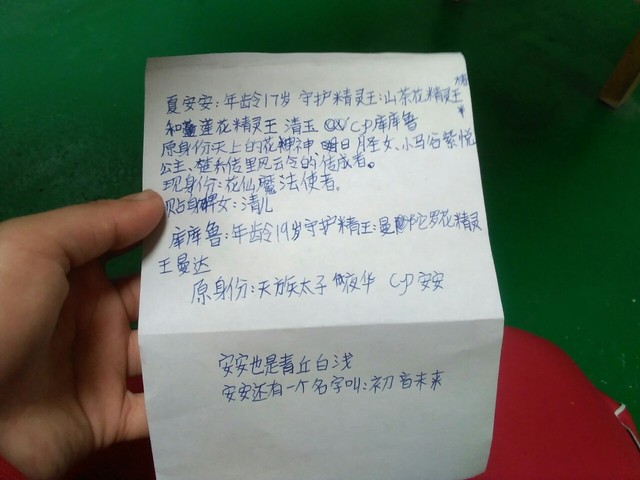 夏安安:年龄17岁 守护精灵王:山茶花精灵王
和莲花精灵王 清玉 cp库库鲁
原身份天上的花神神、明日圣女、小马谷紫悦
公主、楚乔传里风云令的传成者。
现身份:花仙魔法使者。
贴身婢女:清儿
库库鲁:年龄19岁守护精王:曼陀罗花精灵
王曼达
原身份:天族太子 夜华 cp 安安
安安也是青丘白浅
安安还有一个名字叫:初音未来